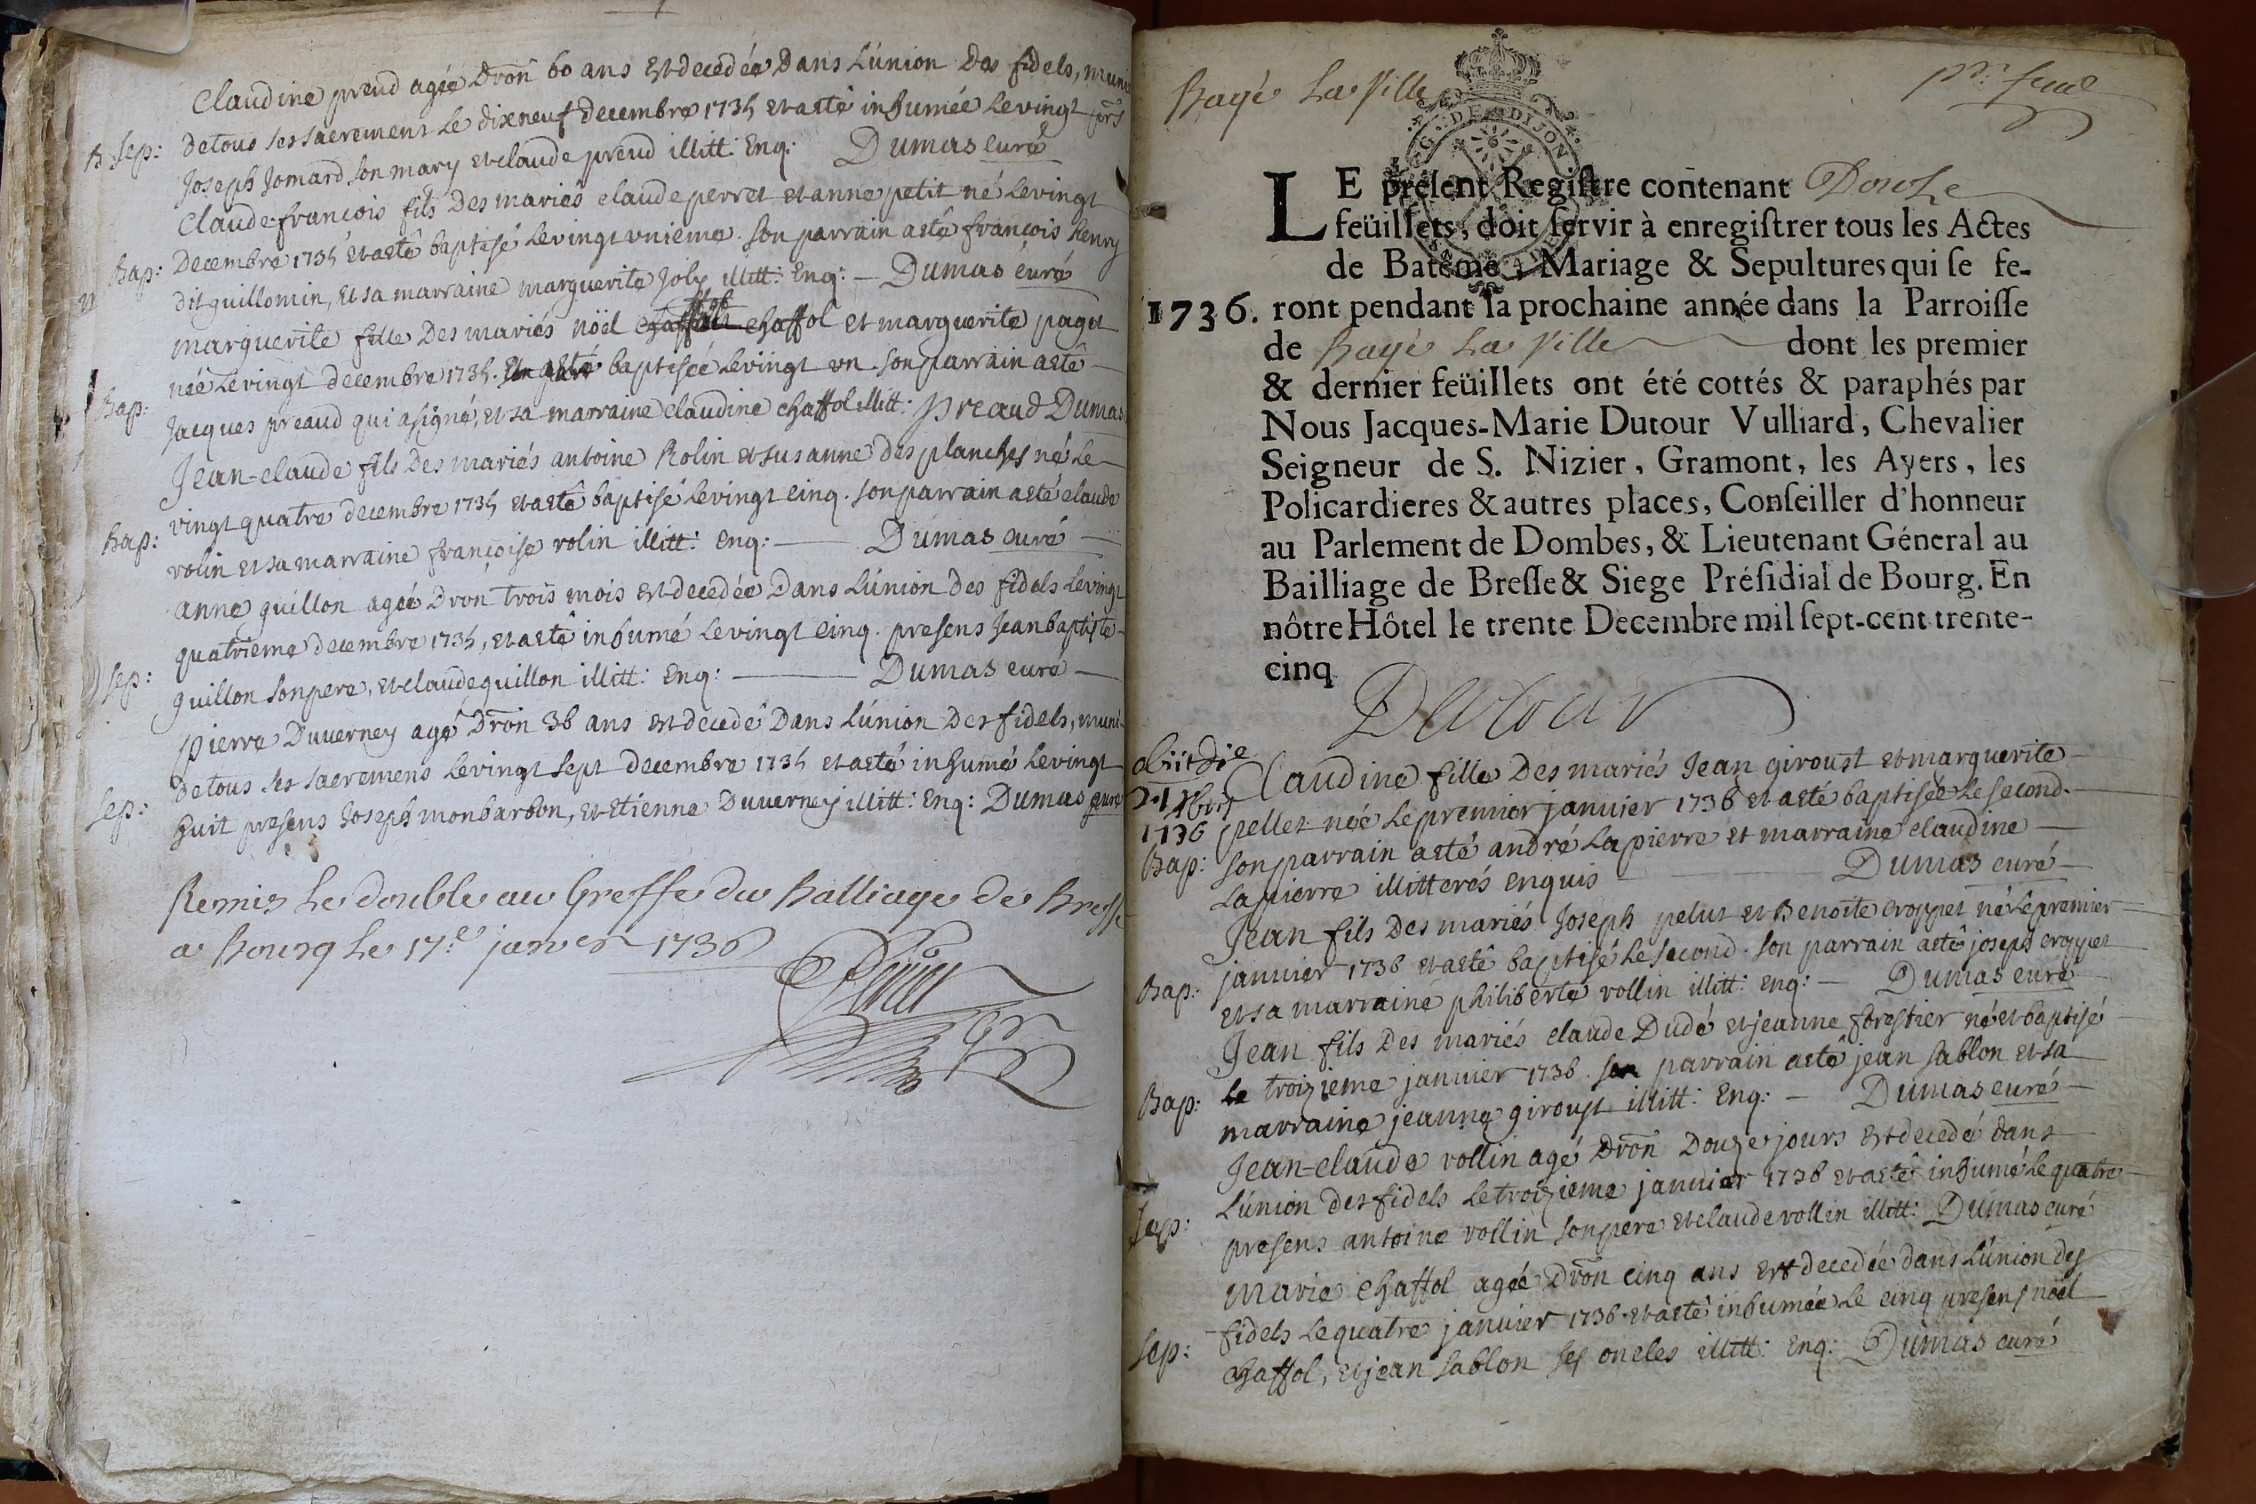 Claudine preud agée Dron 60 ans Est decedée Dans L'union Des fidels, muni
B Sep: de tous ses sacrement Le dixneuf decembre 1735 et a esté inhumée Le vingt
Joseph Jomard son mary et claude preud illitt: Enq: Dumas curé
Claude françois fils Des mariés claude perret et anne petit né Le vingt
Bap: Decembre 1735 et a esté baptisé Le vingt vnieme. Son parrain a esté françois henry
dit guillomin, Et sa marraine marguerite Joly illitt: Enq: — Dumas curé
marguerite fille Des mariés noël chaffol et marguerite paget
née Le vingt decembre 1735. baptisée Le vingt vn. son parrain a esté
Bap: Jacques preaud qui a signé, et sa marraine claudine chaffol illitt: Preaud Dumas
Jean-claude fils Des mariés antoine Rolin et susanne des planches né Le
vingt quatre decembre 1735 et a esté baptisé Le vingt cinq. son parrain a esté claude
Bap: rolin et sa marraine françoise rolin illitt: Enq: — Dumas curé —
anne guillon agée Dron trois mois Est decedée Dans L'union Des fidels Le vingt
quatrieme decembre 1735, et a esté inhumé Le vingt cinq. presens Jean baptiste
Sep: guillon son pere, et claude guillon illitt: Enq: — Dumas curé —
pierre Duverney agé Dron 36 ans Est decedé Dans L'union Des fidels, muni
de tous ses sacremens Le vingt sept decembre 1735 et a esté inhumé Le vingt
Sep: huit presens Joseph monbarbon, et Etienne Duverney illitt: Enq: Dumas curé
Remis Le double au Greffe du Balliage de Bresse
a Bourg Le 17.e janvier 1736
Bagé La Ville
LE present Registre contenant Douze
feüillets, doit servir à enregistrer tous les Actes
de Batême, Mariage & Sepultures qui se fe-
1736. ront pendant la prochaine année dans la Parroisse
de Bagé La Ville dont les premier
& dernier feüillets ont été cottés & paraphés par
Nous Jacques-Marie Dutour Vulliard, Chevalier
Seigneur de S. Nizier, Gramont, les Ayers, les
Policardieres & autres places, Conseiller d'honneur
au Parlement de Dombes, & Lieutenant Géneral au
Bailliage de Bresse & Siege Présidial de Bourg. En
nôtre Hôtel le trente Decembre mil sept-cent trente-
cinq
Dutour
obiit die
21
1736
Claudine fille Des mariés Jean giroust et marguerite
pellet née Le premier janvier 1736 et a esté baptisée Le second.
Bap: son parrain a esté andré Lapierre et marraine claudine
Lapierre illitterés enquis — Dumas curé —
Jean fils Des mariés Joseph pelut et Benoite croppet né Le premier
janvier 1736 et a esté baptisé Le second. son parrain a esté joseph croppet
Bap: et sa marraine philiberte rollin illitt: enq: — Dumas curé
Jean fils Des mariés claude Dudé et jeanne forestier né et baptisé
le troizieme janvier 1736. son parrain a esté jean sablon et sa
Bap: marraine jeanne giroust illitt: Enq: — Dumas curé —
Jean-claude rollin agé Dron Douze jours Est decedé dans
L'union des fidels Le troizieme janvier 1736 et a esté inhumé Le quatre
Sep: presens antoine rollin son pere et claude rollin illitt: Dumas curé
Marie chaffol agée Dron cinq ans Est decedée dans L'union des
fidels Le quatre janvier 1736. et a esté inhumée Le cinq presens noël
Sep: chaffol, et jean sablon ses oncles illitt: Enq: Dumas curé